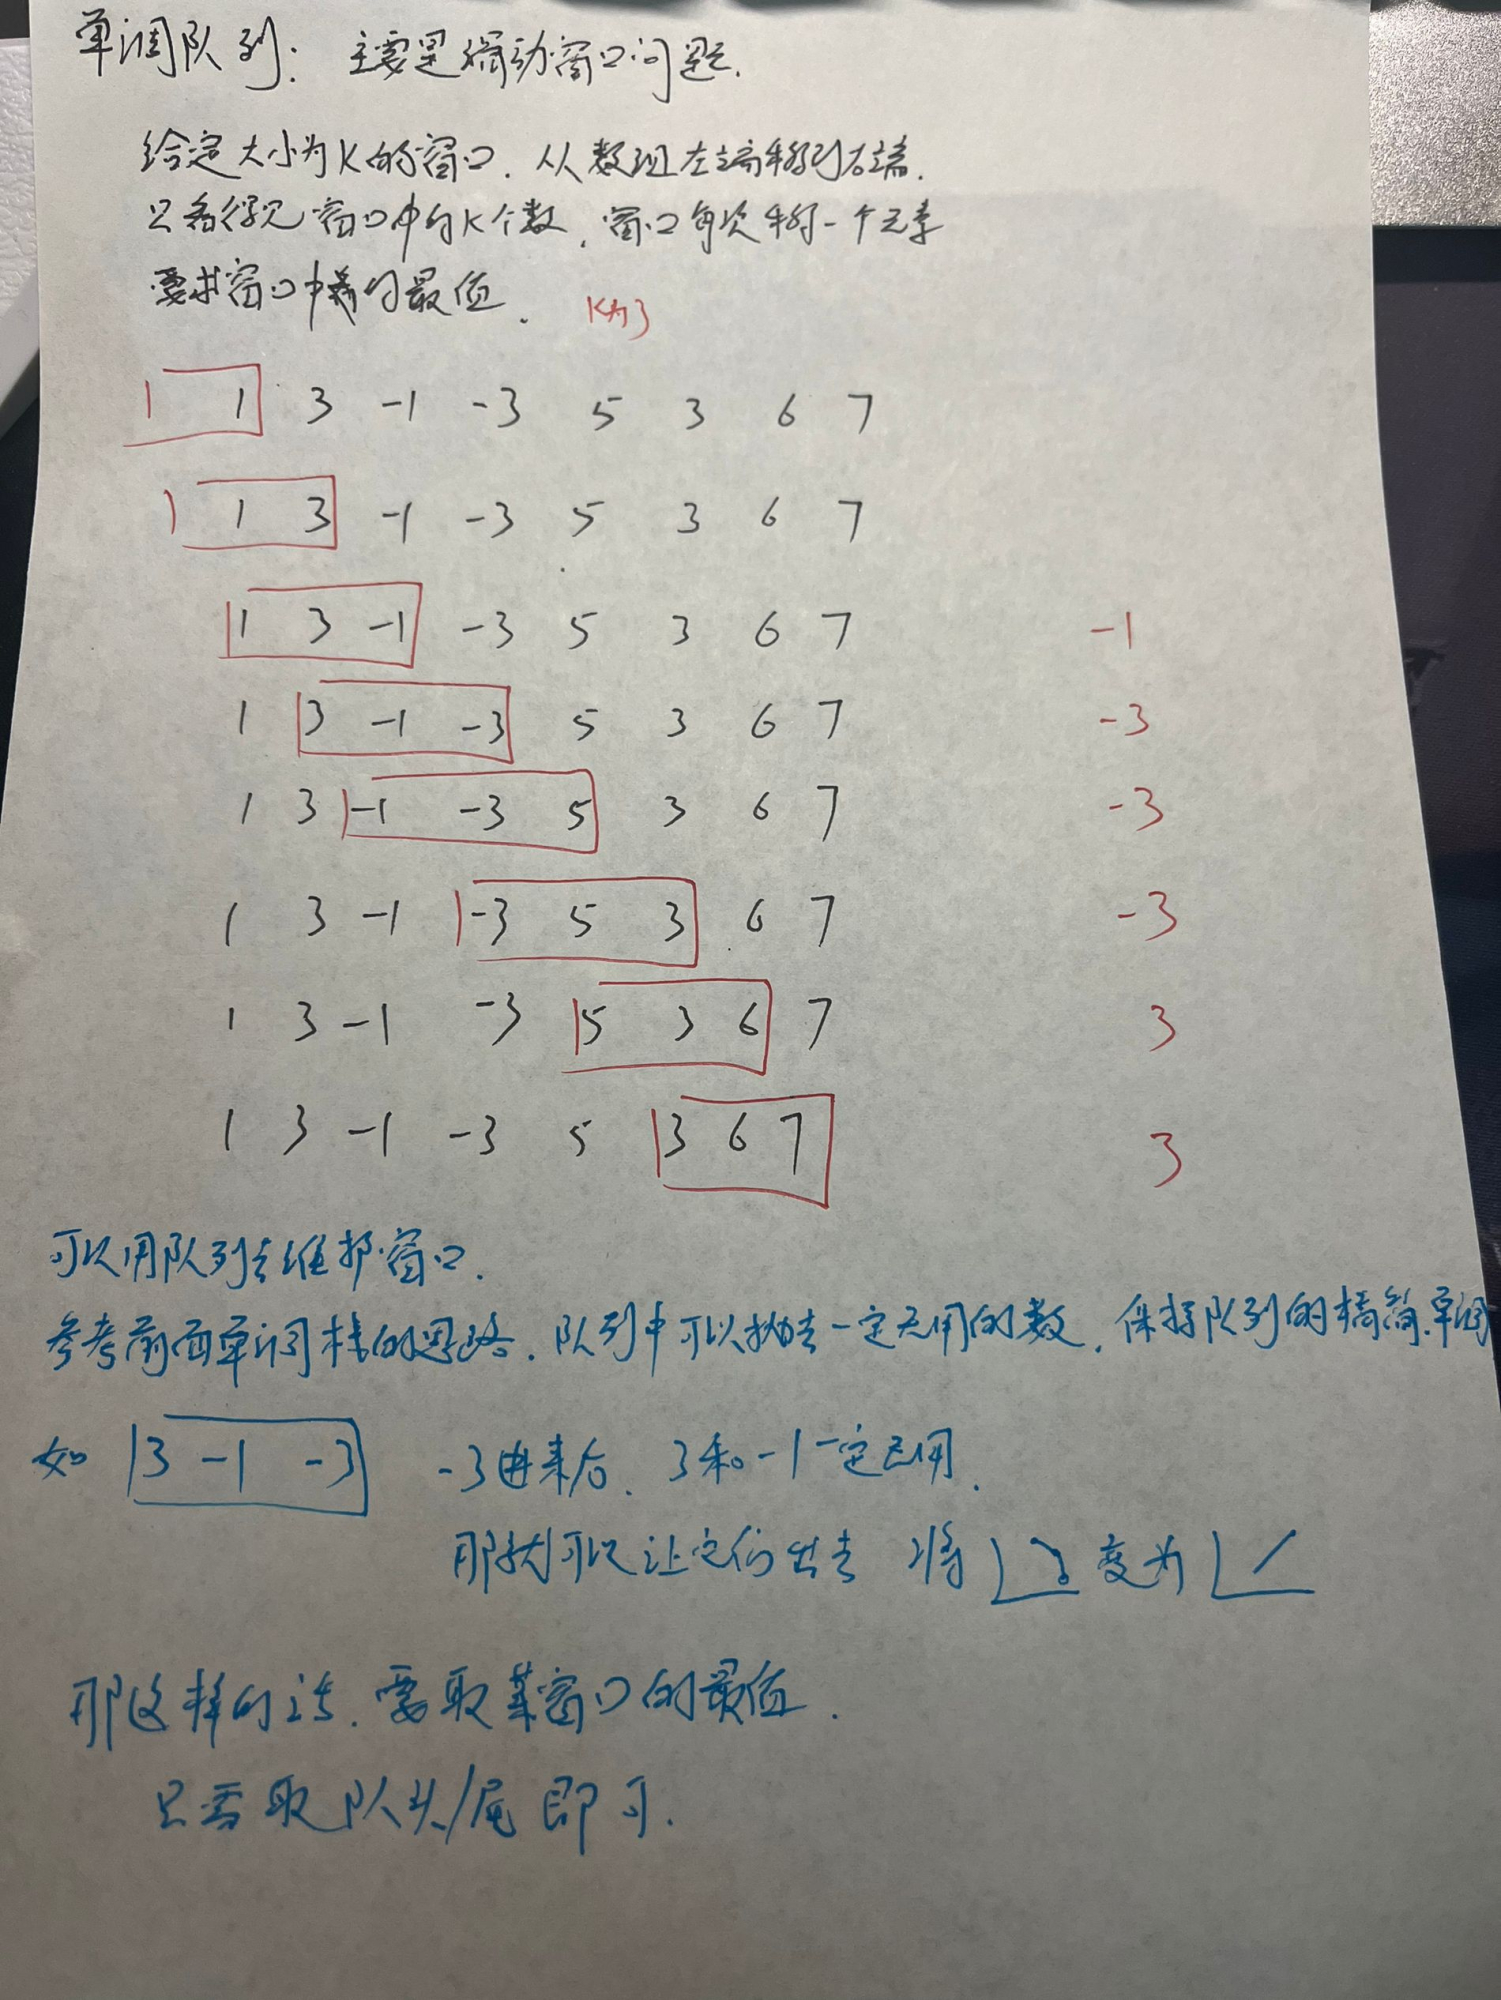 单调队列：主要是滑动窗口问题.
给定大小为K的窗口. 从数组左端移到右端.
只看得见窗口中的K个数, 窗口每次移一个元素
要求窗口中的最值. K为3
1 3 -1 -3 5 3 6 7
1 3 -1 -3 5 3 6 7
1 3 -1 -3 5 3 6 7 -1
1 3 -1 -3 5 3 6 7 -3
1 3 -1 -3 5 3 6 7 -3
1 3 -1 -3 5 3 6 7 -3
1 3 -1 -3 5 3 6 7 3
1 3 -1 -3 5 3 6 7 3
可以用队列去维护窗口.
参考前面单调栈的思路. 队列中可以抛去一定无用的数, 保持队列的精简.单调
如 3 -1 -3 -3进来后. 3和-1一定无用.
那就可以让它们出去 将 变为
那这样的话. 要取某窗口的最值.
只需取队头/尾即可.